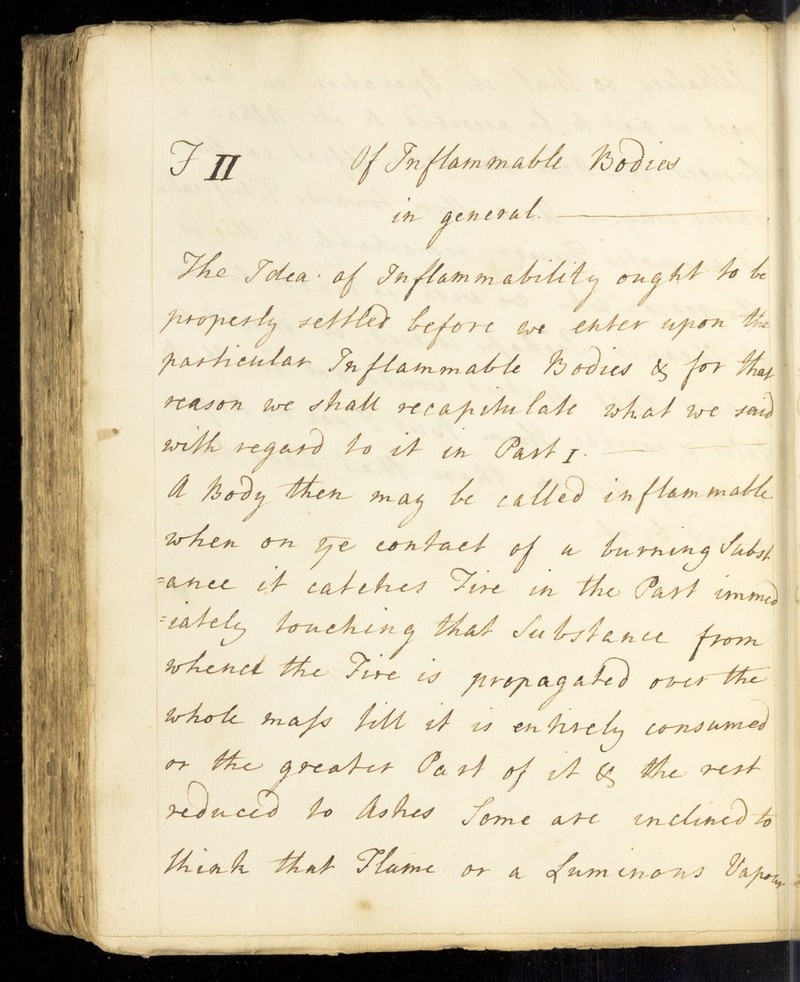 F II Of Inflammable Bodies
in general.
The Idea of Inflammability ought to be
properly settled before we enter upon the
particular Inflammable Bodies & for that
reason we shall recapitulate what we said
with regard to it in Part I.
A Body then may be called inflammable
when on ye contact of a burning Subst
=ance it catches Fire in the Part immed
=iately touching that Substance from
whence the Fire is propagated over the
whole mass till it is entirely consumed
or the greater Part of it & the rest
reduced to Ashes Some are inclined to
think that Flame or a Luminous Vapour